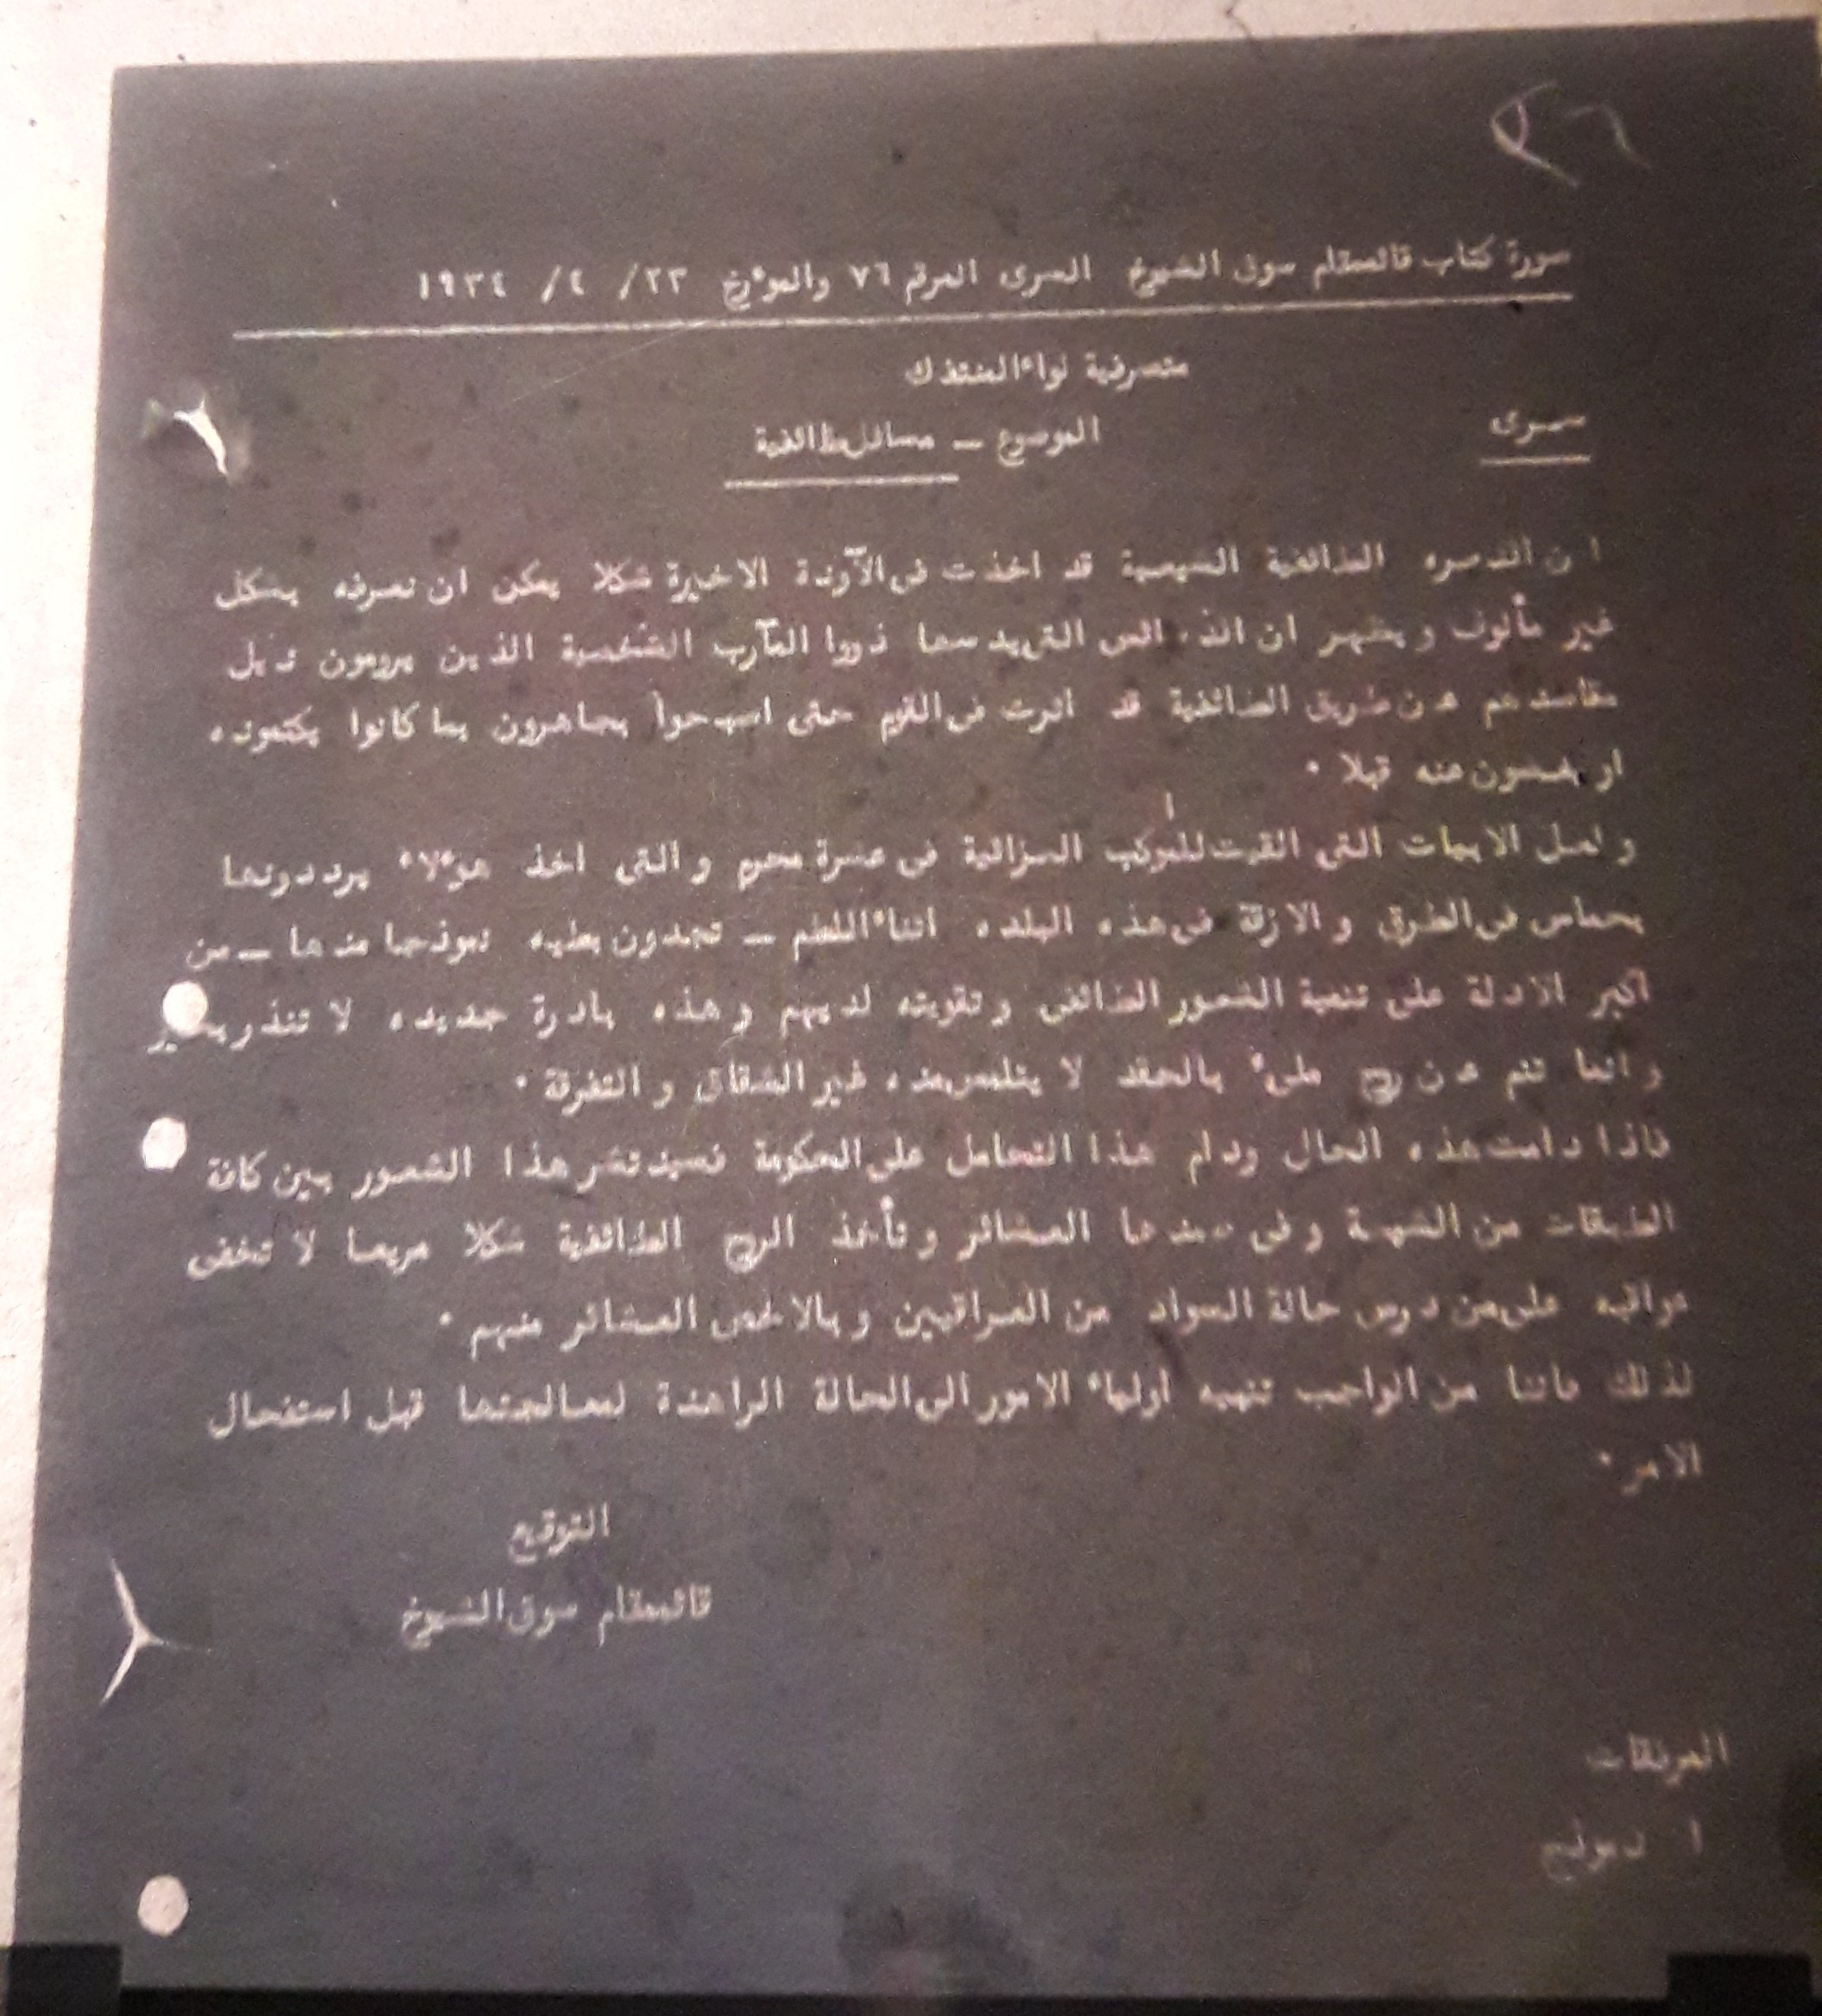 ٣٦
صورة كتاب قائممقام سوق الشيوخ السرى المرقم ٧٦ والموءرخ ٢٣/ ٤/ ١٩٣٤
متصرفية لواء المنتفك
سرى
الموضوع ـ مسائل طائفية
ان النعره الطائفية الشيعية قد اخذت فى الآونة الاخيرة شكلا يمكن ان نعرفه بشكل
غير مألوف ويظهر ان الدسائس التى يدسها ذووا المآرب الشخصية الذين يرومون نيل
مقاصدهم عن طريق الطائفية قد اثرت فى القوم حتى اصبحوا يجاهرون بما كانوا يكتمونه
او يغضون عنه قبلا ٠
ولعل الابيات التى القيت للمواكب العزائية فى عشرة محرم والتى اخذ هوءلاء يرددونها
بحماس فى الطرق والازقة فى هذه البلده اثناء اللطم ـ تجدون بطيه نموذجا منها ـ من
اكبر الادلة على تنمية الشعور الطائفى وتقويته لديهم وهذه بادرة جديده لا تنذر بخير
وانما تنم عن روح ملىء بالحقد لا يتلمس منه غير الشقاق والتفرقة ٠
فاذا دامت هذه الحال ودام هذا التحامل على الحكومة فسينتشر هذا الشعور بين كافة
الطبقات من الشيعة وفى ضمنها العشائر وتأخذ الروح الطائفية شكلا مريعا لا تخفى
عواقبه على من درس حالة السواد من العراقيين وبالاخص العشائر منهم ٠
لذلك من الواجب تنبيه اولياء الامور الى الحالة الراهنة لمعالجتها قبل استفحال
الامر ٠
التوقيع
قائممقام سوق الشيوخ
المرفقات
١ نموذج